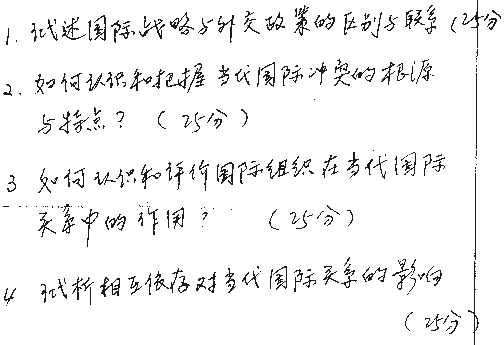 1. 试述国际战略与外交政策的区别与联系 (25分
2. 如何认识和把握当代国际冲突的根源
与特点? (25分)
3 如何认识和评价国际组织在当代国际
关系中的作用? (25分)
4 试析相互依存对当代国际关系的影响
(25分)